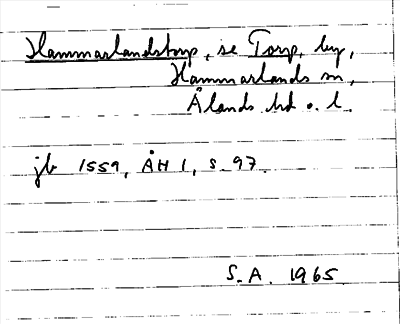 Hammarlandstorp, se Torp, by,
Hammarlands sn,
Ålands hd o. l.
jb 1559, ÅH 1, s. 97.
S.A. 1965